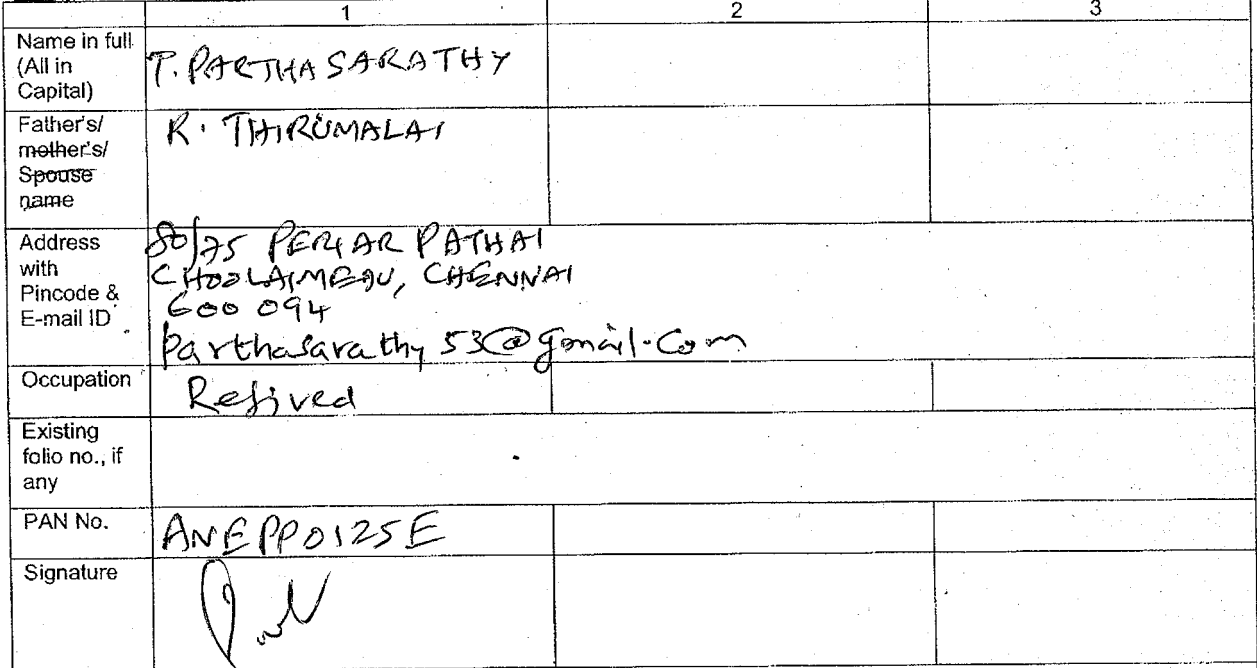 1 2 3
Name in full
(All in
Capital)
T. PARTHASARATHY
Father's/
mother's/
Spouse
name
R. THIRUMALAI
Address
with
Pincode &
E-mail ID
80/75 PERIAR PATHAI
CHOOLAIMEDU, CHENNAI
600 094
parthasarathy53@gmail.com
Occupation
Retired
Existing
folio no., if
any
PAN No.
ANEPP0125E
Signature